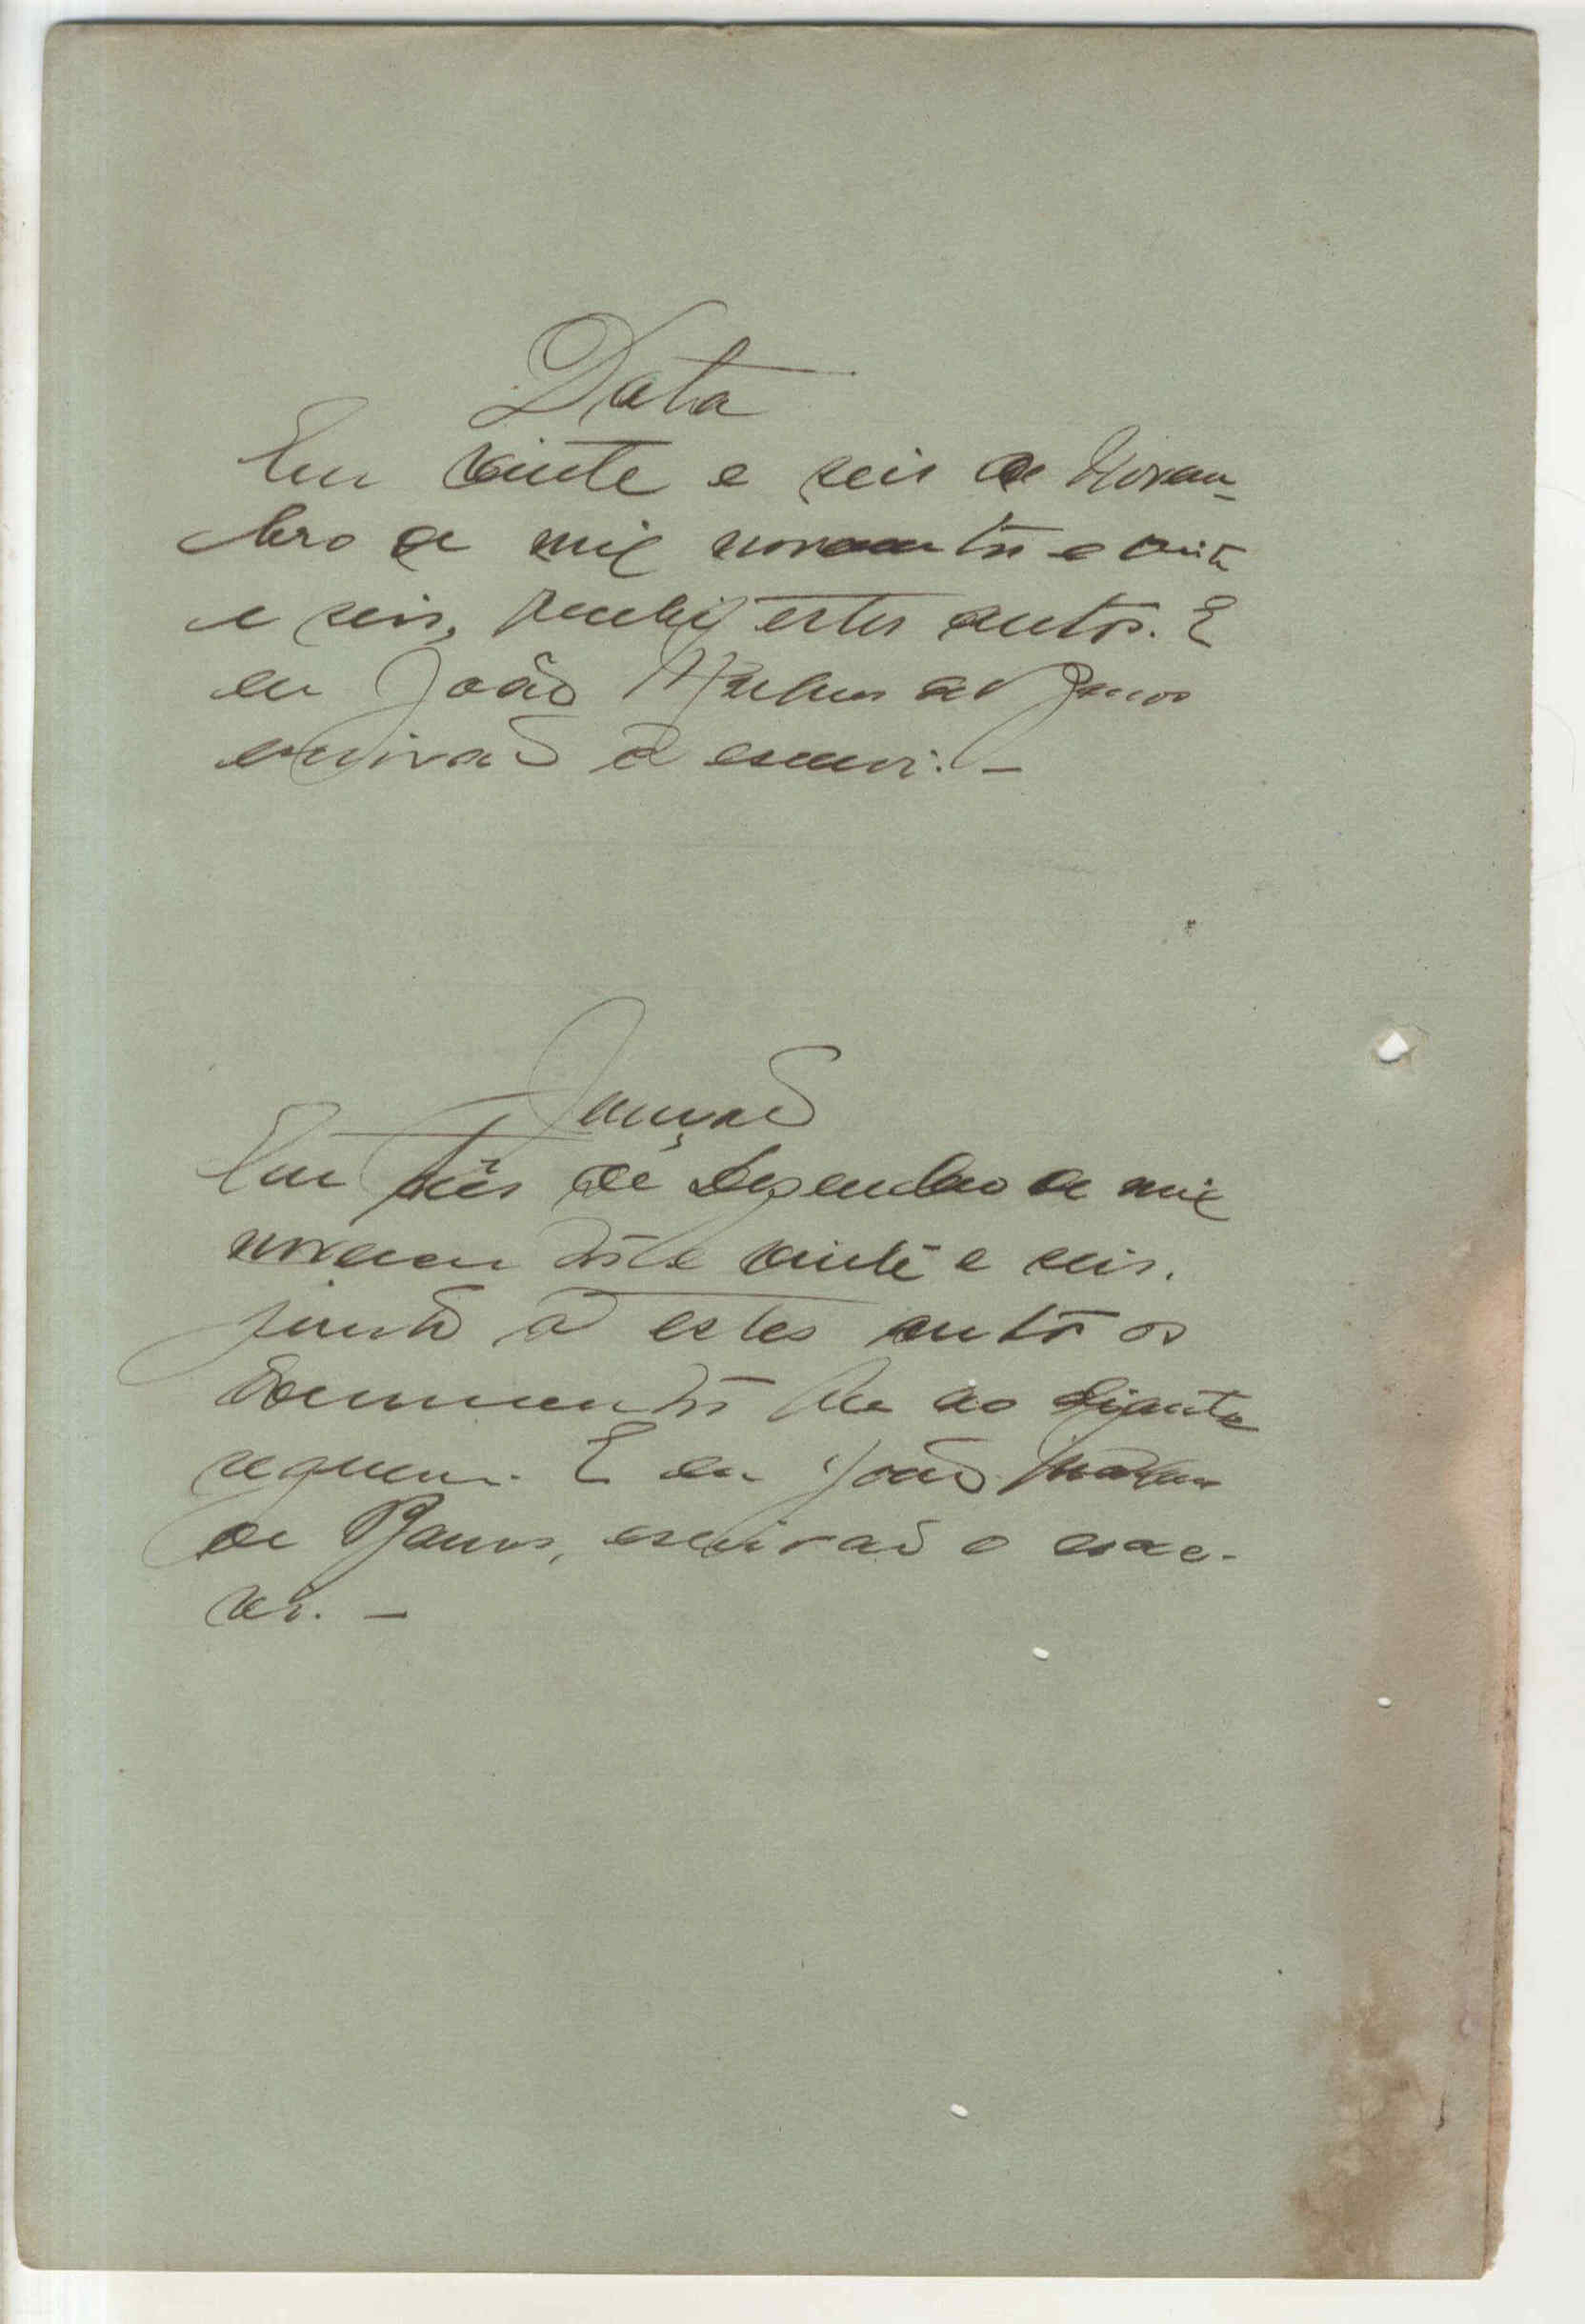 Data
Em vinte e seis de Novem-
bro de mil novecentos e vinte
e seis, recebi estes autos. E
eu João de Barros
escrivão o escrevi. -
Juncção
Em três de Dezembro de mil
novecentos e vinte e seis.
junto a estes autos os
documentos que ao diante
seguem. E eu João
de Barros, escrivão o escre-
vi. -